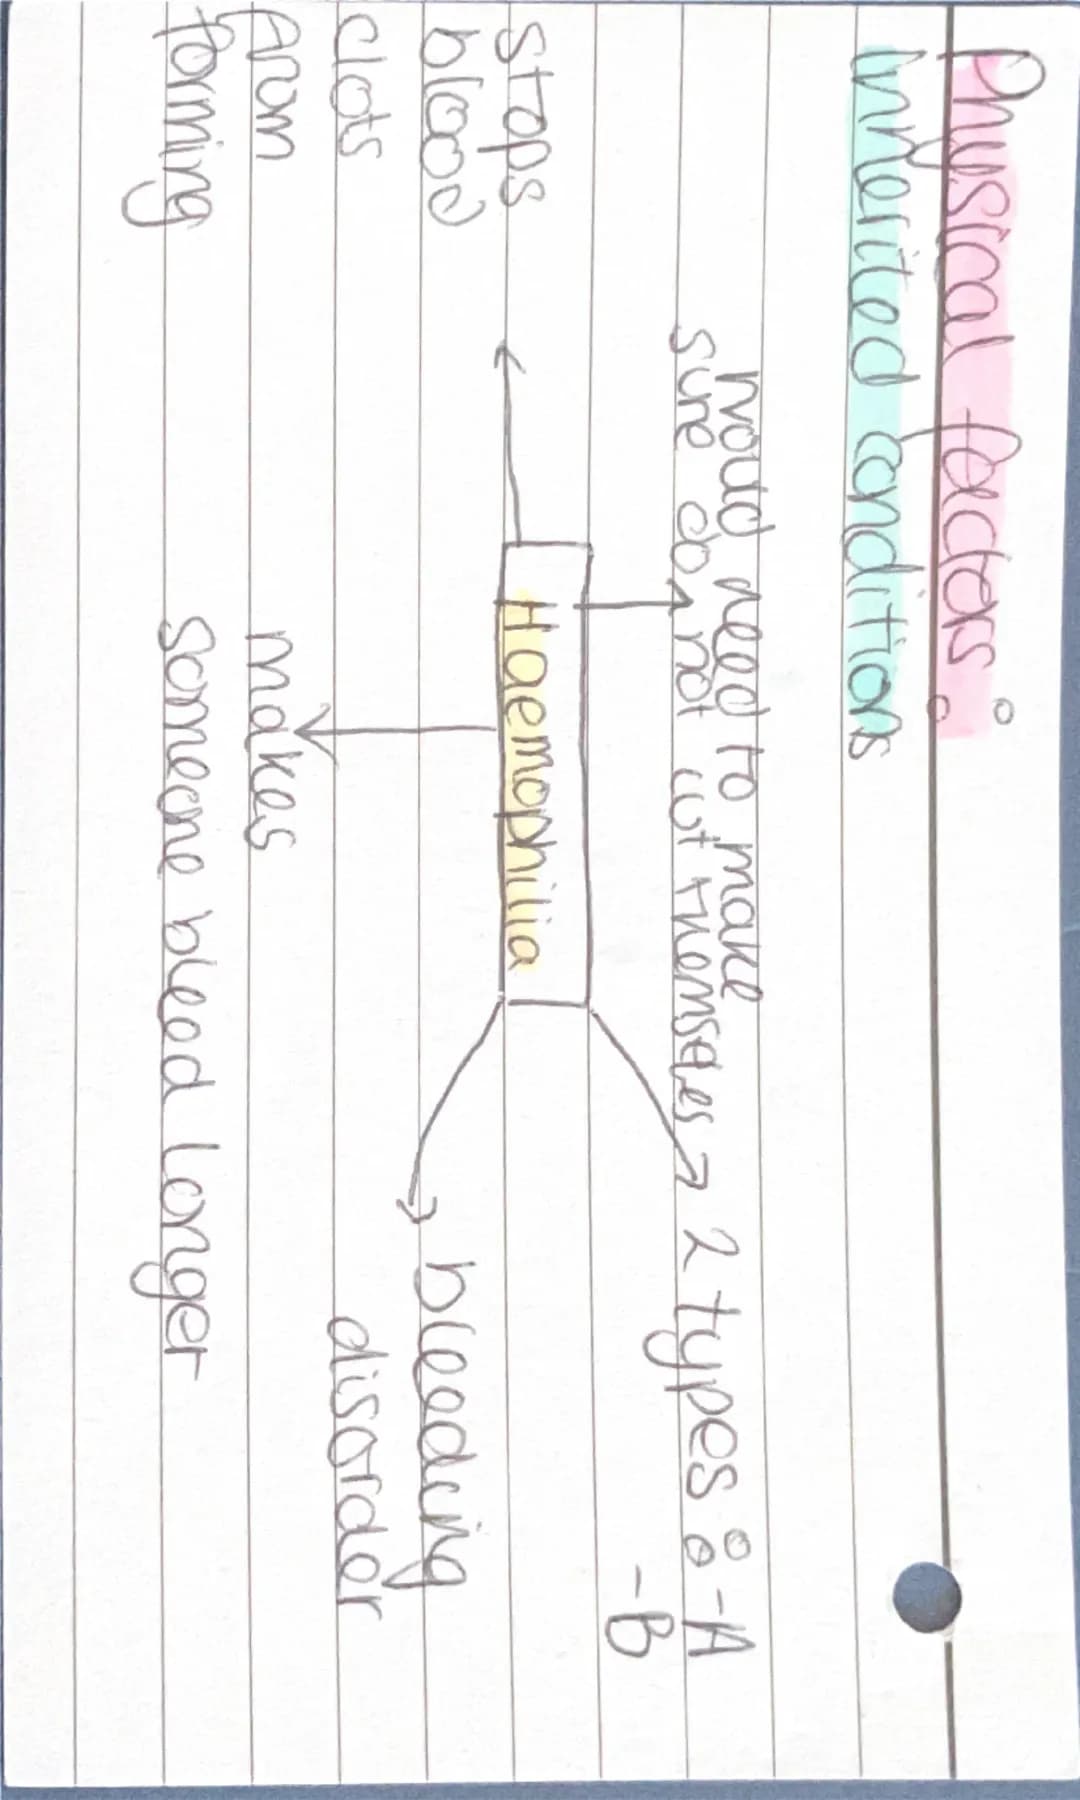 Physical factors:
inherited conditions
would need to make
sure do not cut themselves
2 types: -A
-B
Haemophilia
stops
blood
clots
from
forming
bleeding
disorder
makes
someone bleed longer